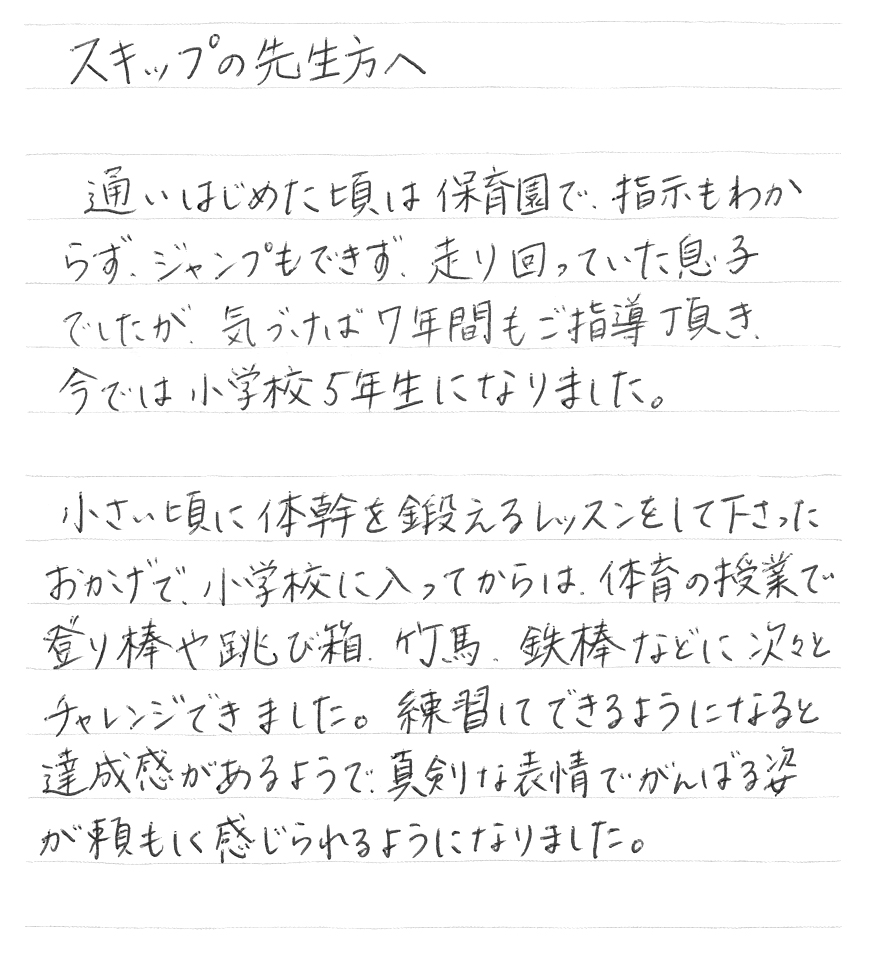 スキップの先生方へ
通いはじめた頃は保育園で、指示もわか
らず、ジャンプもできず、走り回っていた息子
でしたが、気づけば7年間もご指導頂き、
今では小学校5年生になりました。
小さい頃に体幹を鍛えるレッスンをして下さった
おかげで、小学校に入ってからは、体育の授業で
登り棒や跳び箱、竹馬、鉄棒などに次々と
チャレンジできました。練習してできるようになると
達成感があるようで、真剣な表情でがんばる姿
が頼もしく感じられるようになりました。